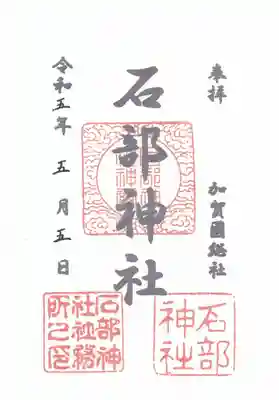 奉拝
加賀國総社
石部神社
令和五年 五月五日
石部
神社
石部神
社社務
所之印